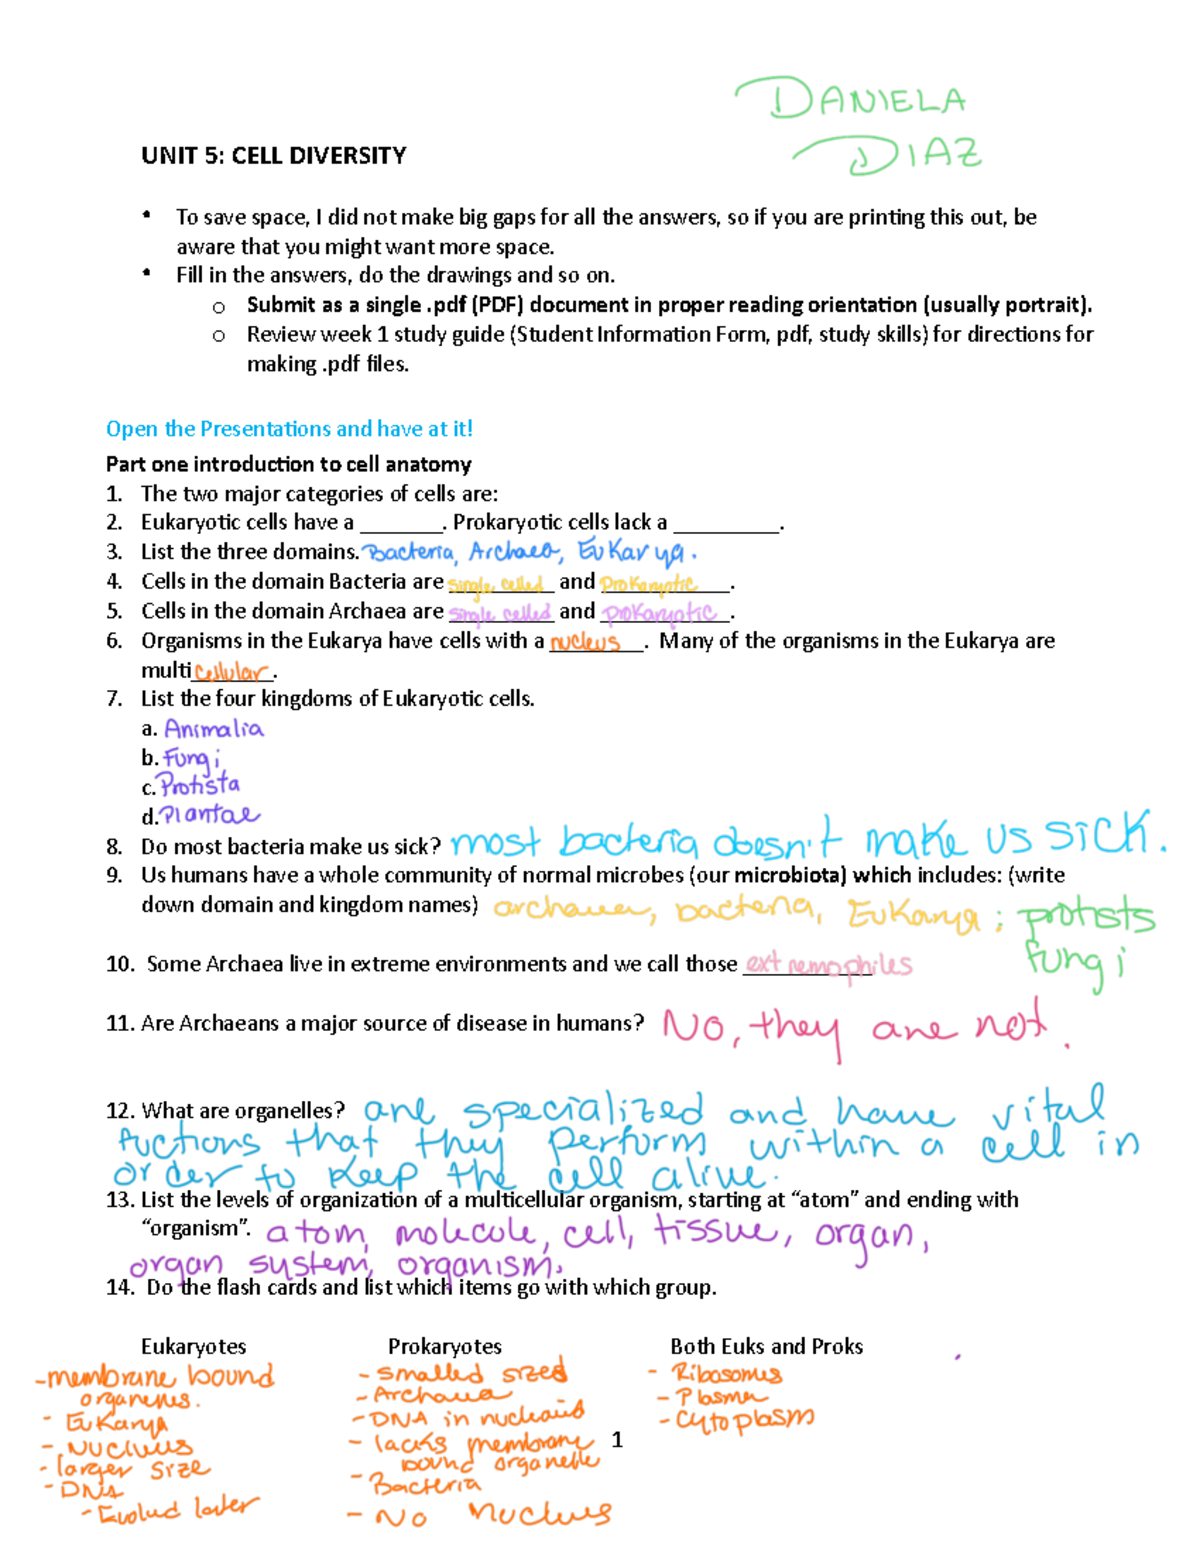 DANIELA
DIAZ
UNIT 5: CELL DIVERSITY
• To save space, I did not make big gaps for all the answers, so if you are printing this out, be
aware that you might want more space.
• Fill in the answers, do the drawings and so on.
o Submit as a single .pdf (PDF) document in proper reading orientation (usually portrait).
o Review week 1 study guide (Student Information Form, pdf, study skills) for directions for
making .pdf files.
Open the Presentations and have at it!
Part one introduction to cell anatomy
1. The two major categories of cells are:
2. Eukaryotic cells have a _______. Prokaryotic cells lack a _________.
3. List the three domains. Bacteria, Archaea, Eukarya.
4. Cells in the domain Bacteria are single celled and prokaryotic.
5. Cells in the domain Archaea are single celled and prokaryotic.
6. Organisms in the Eukarya have cells with a nucleus. Many of the organisms in the Eukarya are
multicellular.
7. List the four kingdoms of Eukaryotic cells.
a. Animalia
b. Fungi
c. Protista
d. Plantae
8. Do most bacteria make us sick? most bacteria doesn't make us sick.
9. Us humans have a whole community of normal microbes (our microbiota) which includes: (write
down domain and kingdom names) archaea, bacteria, Eukarya; protists
fungi
10. Some Archaea live in extreme environments and we call those extremophiles
11. Are Archaeans a major source of disease in humans? No, they are not.
12. What are organelles? are specialized and have vital
fuctions that they perform within a cell in
order to keep the cell alive.
13. List the levels of organization of a multicellular organism, starting at “atom” and ending with
“organism”. atom, molecule, cell, tissue, organ,
organ system, organism.
14. Do the flash cards and list which items go with which group.
Eukaryotes Prokaryotes Both Euks and Proks
-membrane bound
organelles.
- Eukarya
- Nucleus
- larger size
- DNA
- Evolved later
- smalled sized
- Archaea
- DNA in nucleoid
- lacks membrane
bound organelle
- Bacteria
- No Nucleus
- Ribosomes
- Plasma
- Cytoplasm
1